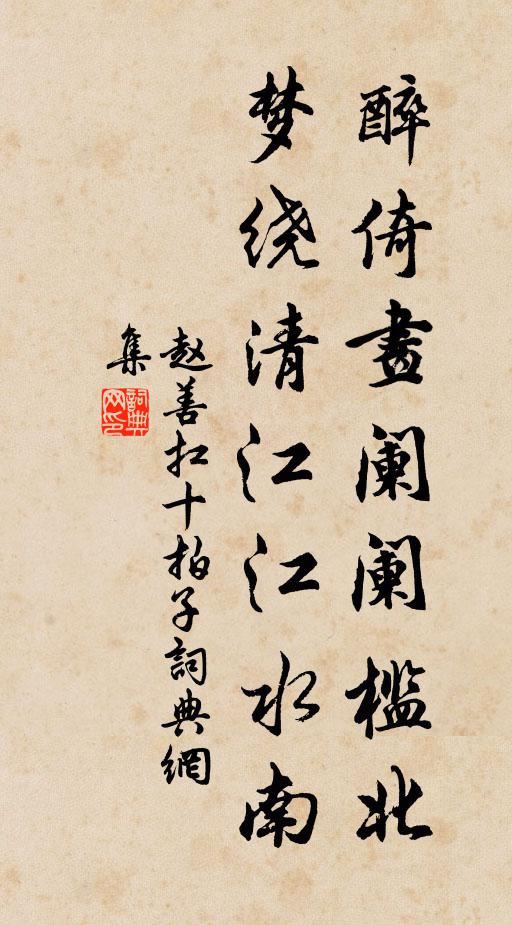 醉倚畫阑阑槛北
梦绕清江江水南
赵善扛十拍子詞典網
集
詞典網印